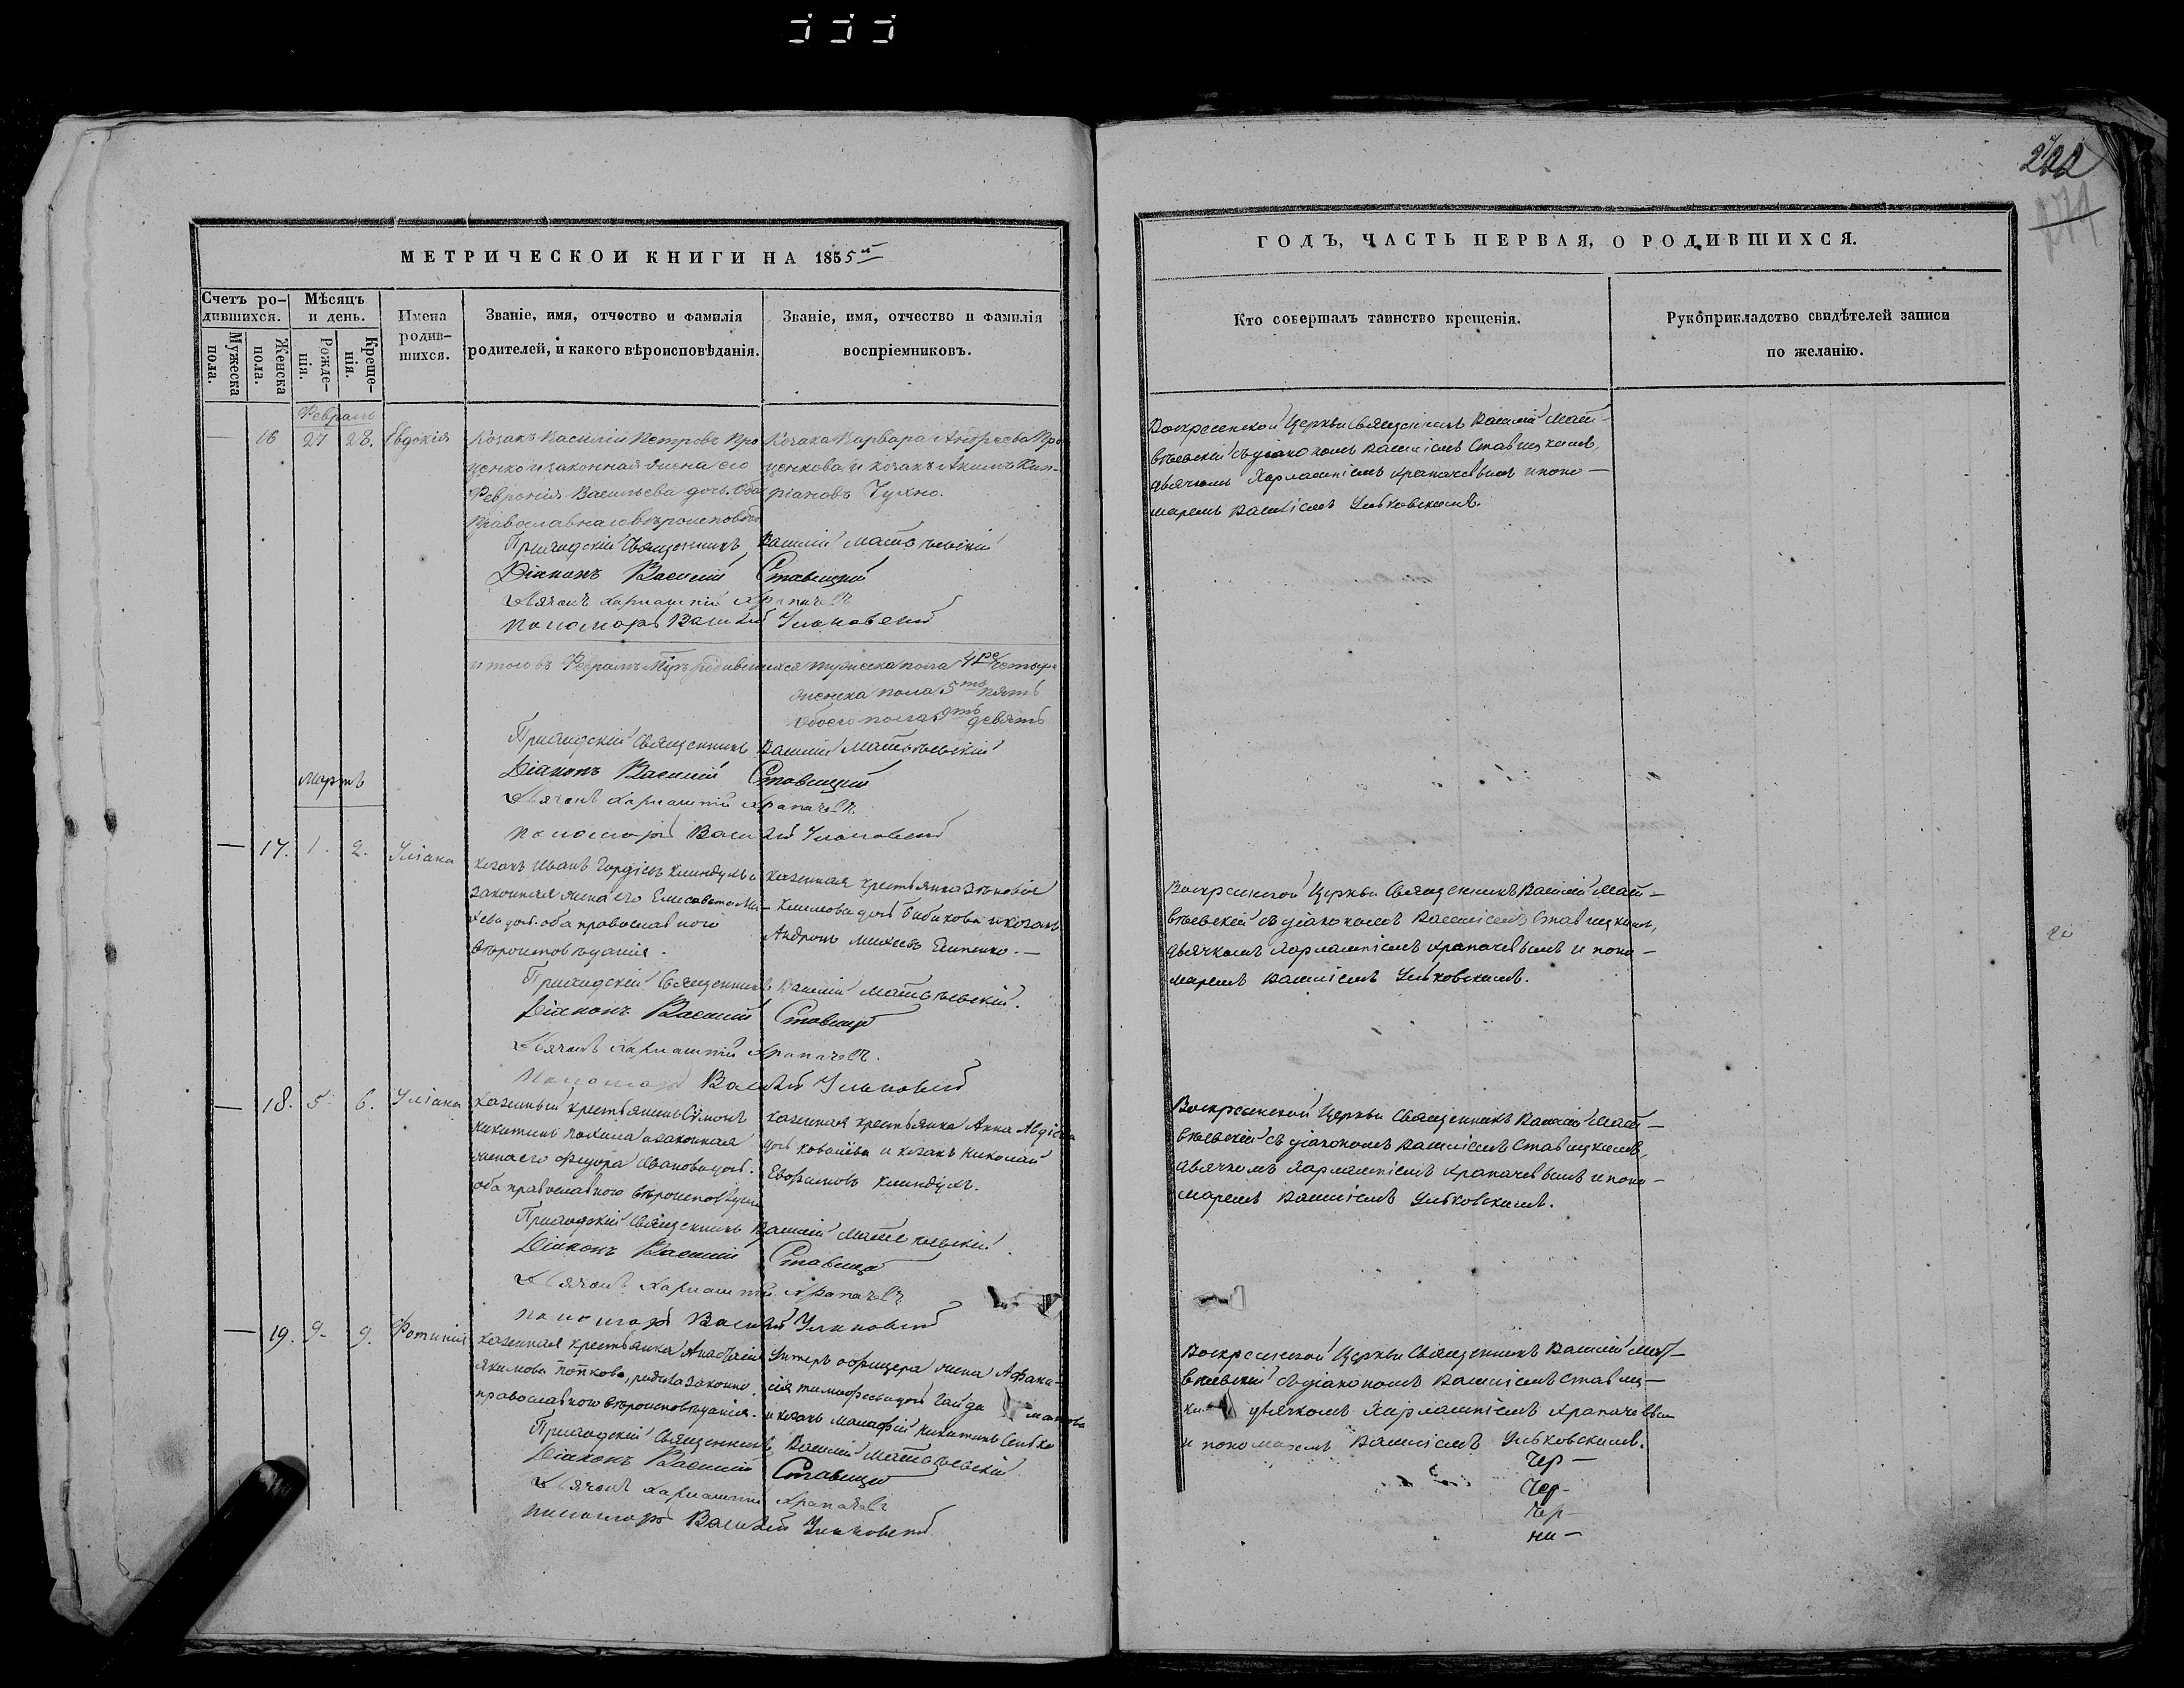 222
271
МЕТРИЧЕСКОЙ КНИГИ НА 1855й
ГОДЪ, ЧАСТЬ ПЕРВАЯ, О РОДИВШИХСЯ.
Счетъ ро-
дившихся.
Мужеска
пола.
Женска
пола.
Мѣсяцъ
и день.
Рожде-
нія.
Креще-
нія.
Имена
родив-
шихся.
Званіе, имя, отчество и фамилія
родителей, и какого вѣроисповѣданія.
Званіе, имя, отчество и фамилія
воспріемниковъ.
Кто совершалъ таинство крещенія.
Рукоприкладство свидѣтелей записи
по желанію.
Февраль
— 16 27 28. Евдокія
Козакъ Василій Петровъ Про
ценко и законная жена его
Февронія Васильева доч. оба
православнаго вѣроисповѣд
Козака Варвара Андреева Про
ценкова и козакъ Акимъ Кип-
ріановъ Чухно.
Воскресенской Церкви Священникъ Василій Мат-
вѣевскій съ діакономъ Василіемъ Ставицкимъ,
дьячкомъ Харлампіемъ Храпачевымъ и поно-
маремъ Василіемъ Ульковскимъ.
Приходскій Священникъ Василій Матвѣевскій
Діаконъ Василій Ставицкій
Дьячокъ Харлампій Храпачевъ
Пономарь Василій Ульковский
итого въ Февралѣ Мцѣ родившихся мужеска пола 4ре четыре
женска пола 5ть пять
обоего пола 9ть девять
Приходскій Священникъ Василій Матвѣевскій
Діаконъ Василій Ставицкій
Дьячокъ Харлампій Храпачевъ
Пономарь Василій Ульковский
Мартъ
— 17. 1. 2. Уліана
Козакъ Иванъ Гордіевъ Клиндухъ и
законная жена его Елисавета Ми-
хева доч. оба православного
вѣроисповѣданія.
Казенная крестьянка Зѣновія
Климова доч. Бибикова и козакъ
Андронъ Михеевъ Еипенко. —
Воскресенской Церкви Священникъ Василій Мат-
вѣевскій съ діакономъ Василіемъ Ставицкимъ,
дьячкомъ Харлампіемъ Храпачевымъ и поно-
маремъ Василіемъ Ульковскимъ.
Приходскій Священникъ Василій Матвѣевскій.
Діаконъ Василій Ставицкій
Дьячокъ Харлампій Храпачевъ.
Пономарь Василій Ульковский
— 18. 5. 6. Уліана
Казенный крестьянинъ Симонъ
Никитинъ Похила и законная
жена его Федора Иванова доч.
оба православного вѣроисповѣданія
Казенная крестьянка Анна
доч. Ковалева и козакъ Николай
Евфимовъ Клиндухъ.
Воскресенской Церкви Священникъ Василій Мат-
вѣевскій съ діакономъ Василіемъ Ставицкимъ,
дьячкомъ Харлампіемъ Храпачевымъ и поно-
маремъ Василіемъ Ульковскимъ.
Приходскій Священникъ Василій Матвѣевскій.
Діаконъ Василій Ставицкій
Дьячокъ Харлампій Храпачевъ
Пономарь Василій Ульковский
— 19. 9. 9. Фотинія
Казенная крестьянка Анастасія
Якимова Попкова, родила законно.
православного вѣроисповѣданія.
Унтеръ офицера жена Афана-
сія Тимофеева доч. Гайдамакова
и козакъ Малафій Никитинъ Сенько
Воскресенской Церкви Священникъ Василій Мат-
вѣевскій съ діакономъ Василіемъ Ставиц-
ки дьячкомъ Харлампіемъ Храпачевым
и пономаремъ Василіемъ Ульковскимъ.
Приходскій Священникъ Василій Матвѣевскій
Діаконъ Василій Ставицкій
Дьячокъ Харлампій Храпачевъ
Пономарь Василій Ульковский
Чер-
Чер-
Чер-
ни-